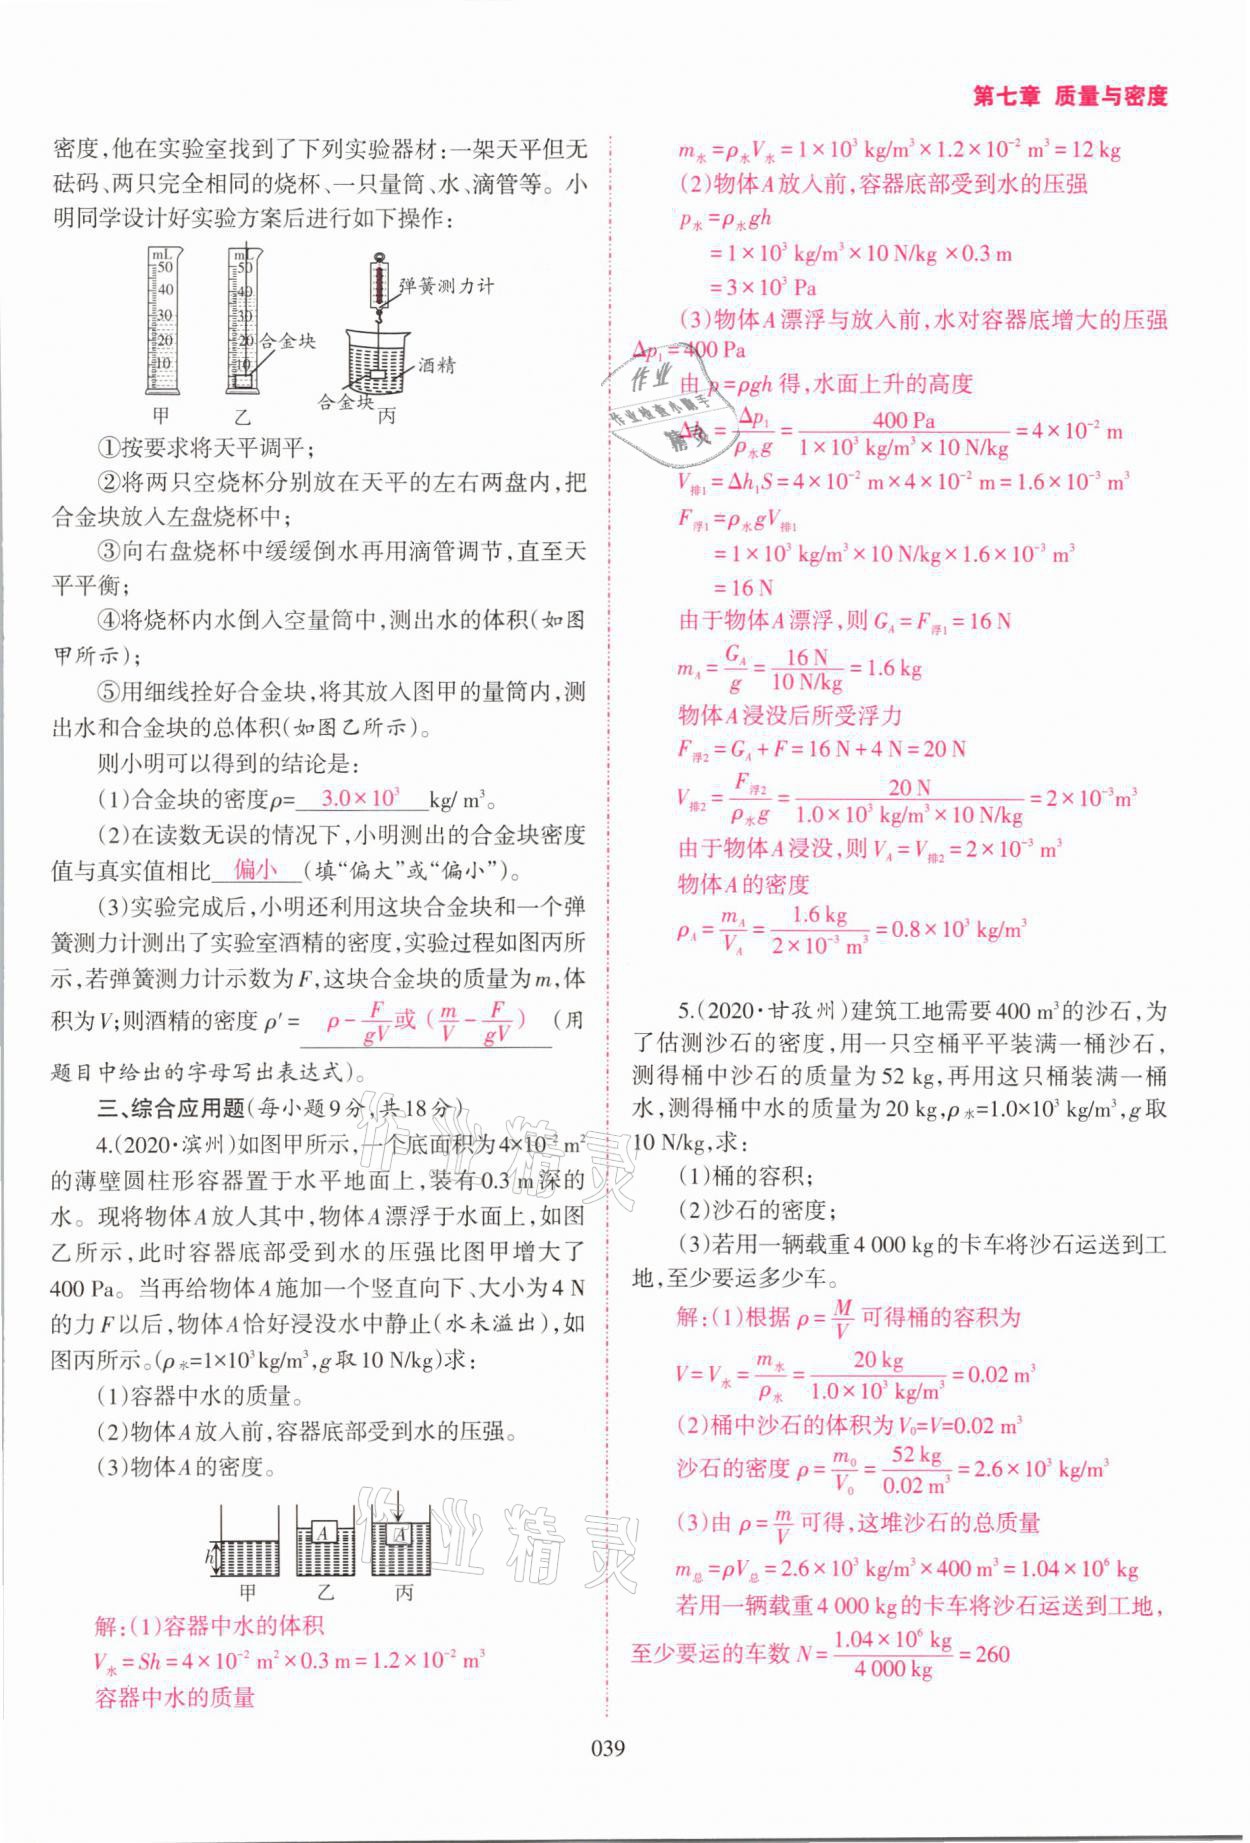 第七章 质量与密度
密度,他在实验室找到了下列实验器材:一架天平但无
砝码、两只完全相同的烧杯、一只量筒、水、滴管等。小
明同学设计好实验方案后进行如下操作:
mL 50 40 30 20 10
mL 50 40 30 20 10
弹簧测力计
合金块
酒精
合金块
甲 乙 丙
①按要求将天平调平;
②将两只空烧杯分别放在天平的左右两盘内,把
合金块放入左盘烧杯中;
③向右盘烧杯中缓缓倒水再用滴管调节,直至天
平平衡;
④将烧杯内水倒入空量筒中,测出水的体积(如图
甲所示);
⑤用细线拴好合金块,将其放入图甲的量筒内,测
出水和合金块的总体积(如图乙所示)。
则小明可以得到的结论是:
(1)合金块的密度ρ= 3.0×10³ kg/ m³。
(2)在读数无误的情况下,小明测出的合金块密度
值与真实值相比 偏小 (填“偏大”或“偏小”)。
(3)实验完成后,小明还利用这块合金块和一个弹
簧测力计测出了实验室酒精的密度,实验过程如图丙所
示,若弹簧测力计示数为F,这块合金块的质量为m,体
积为V;则酒精的密度 ρ′= ρ−F/gV或(m/V−F/gV) (用
题目中给出的字母写出表达式)。
三、综合应用题(每小题9分,共18分)
4.(2020·滨州)如图甲所示,一个底面积为4×10⁻² m²
的薄壁圆柱形容器置于水平地面上,装有0.3 m深的
水。现将物体A放人其中,物体A漂浮于水面上,如图
乙所示,此时容器底部受到水的压强比图甲增大了
400 Pa。当再给物体A施加一个竖直向下、大小为4 N
的力F以后,物体A恰好浸没水中静止(水未溢出),如
图丙所示。(ρ水=1×10³kg/m³,g取10 N/kg)求:
(1)容器中水的质量。
(2)物体A放入前,容器底部受到水的压强。
(3)物体A的密度。
h A A
甲 乙 丙
解:(1)容器中水的体积
V水=Sh=4×10⁻² m²×0.3 m=1.2×10⁻² m³
容器中水的质量
m水=ρ水V水=1×10³ kg/m³×1.2×10⁻² m³=12 kg
(2)物体A放入前,容器底部受到水的压强
p水=ρ水gh
=1×10³ kg/m³×10 N/kg ×0.3 m
=3×10³ Pa
(3)物体A漂浮与放入前,水对容器底增大的压强
Δp₁=400 Pa
由 p=ρgh 得,水面上升的高度
Δh₁=Δp₁/ρ水g=400 Pa/1×10³ kg/m³×10 N/kg=4×10⁻² m
V排1=Δh₁S=4×10⁻² m×4×10⁻² m=1.6×10⁻³ m³
F浮1=ρ水gV排1
=1×10³ kg/m³×10 N/kg×1.6×10⁻³ m³
=16 N
由于物体A漂浮,则 G_A=F浮1=16 N
m_A=G_A/g=16 N/10 N/kg=1.6 kg
物体A浸没后所受浮力
F浮2=G_A+F=16 N+4 N=20 N
V排2=F浮2/ρ水g=20 N/1.0×10³ kg/m³×10 N/kg=2×10⁻³m³
由于物体A浸没,则 V_A=V排2=2×10⁻³ m³
物体A的密度
ρ_A=m_A/V_A=1.6 kg/2×10⁻³ m³=0.8×10³ kg/m³
5.(2020·甘孜州)建筑工地需要400 m³的沙石,为
了估测沙石的密度,用一只空桶平平装满一桶沙石,
测得桶中沙石的质量为52 kg,再用这只桶装满一桶
水,测得桶中水的质量为20 kg,ρ水=1.0×10³ kg/m³,g取
10 N/kg,求:
(1)桶的容积;
(2)沙石的密度;
(3)若用一辆载重4 000 kg的卡车将沙石运送到工
地,至少要运多少车。
解:(1)根据 ρ=M/V 可得桶的容积为
V=V水=m水/ρ水=20 kg/1.0×10³ kg/m³=0.02 m³
(2)桶中沙石的体积为 V₀=V=0.02 m³
沙石的密度 ρ=m₀/V₀=52 kg/0.02 m³=2.6×10³ kg/m³
(3)由 ρ=m/V 可得,这堆沙石的总质量
m总=ρV总=2.6×10³ kg/m³×400 m³=1.04×10⁶ kg
若用一辆载重4 000 kg的卡车将沙石运送到工地,
至少要运的车数 N=1.04×10⁶ kg/4 000 kg=260
作业
作业检查小助手
精灵
作业精灵
作业精灵
039